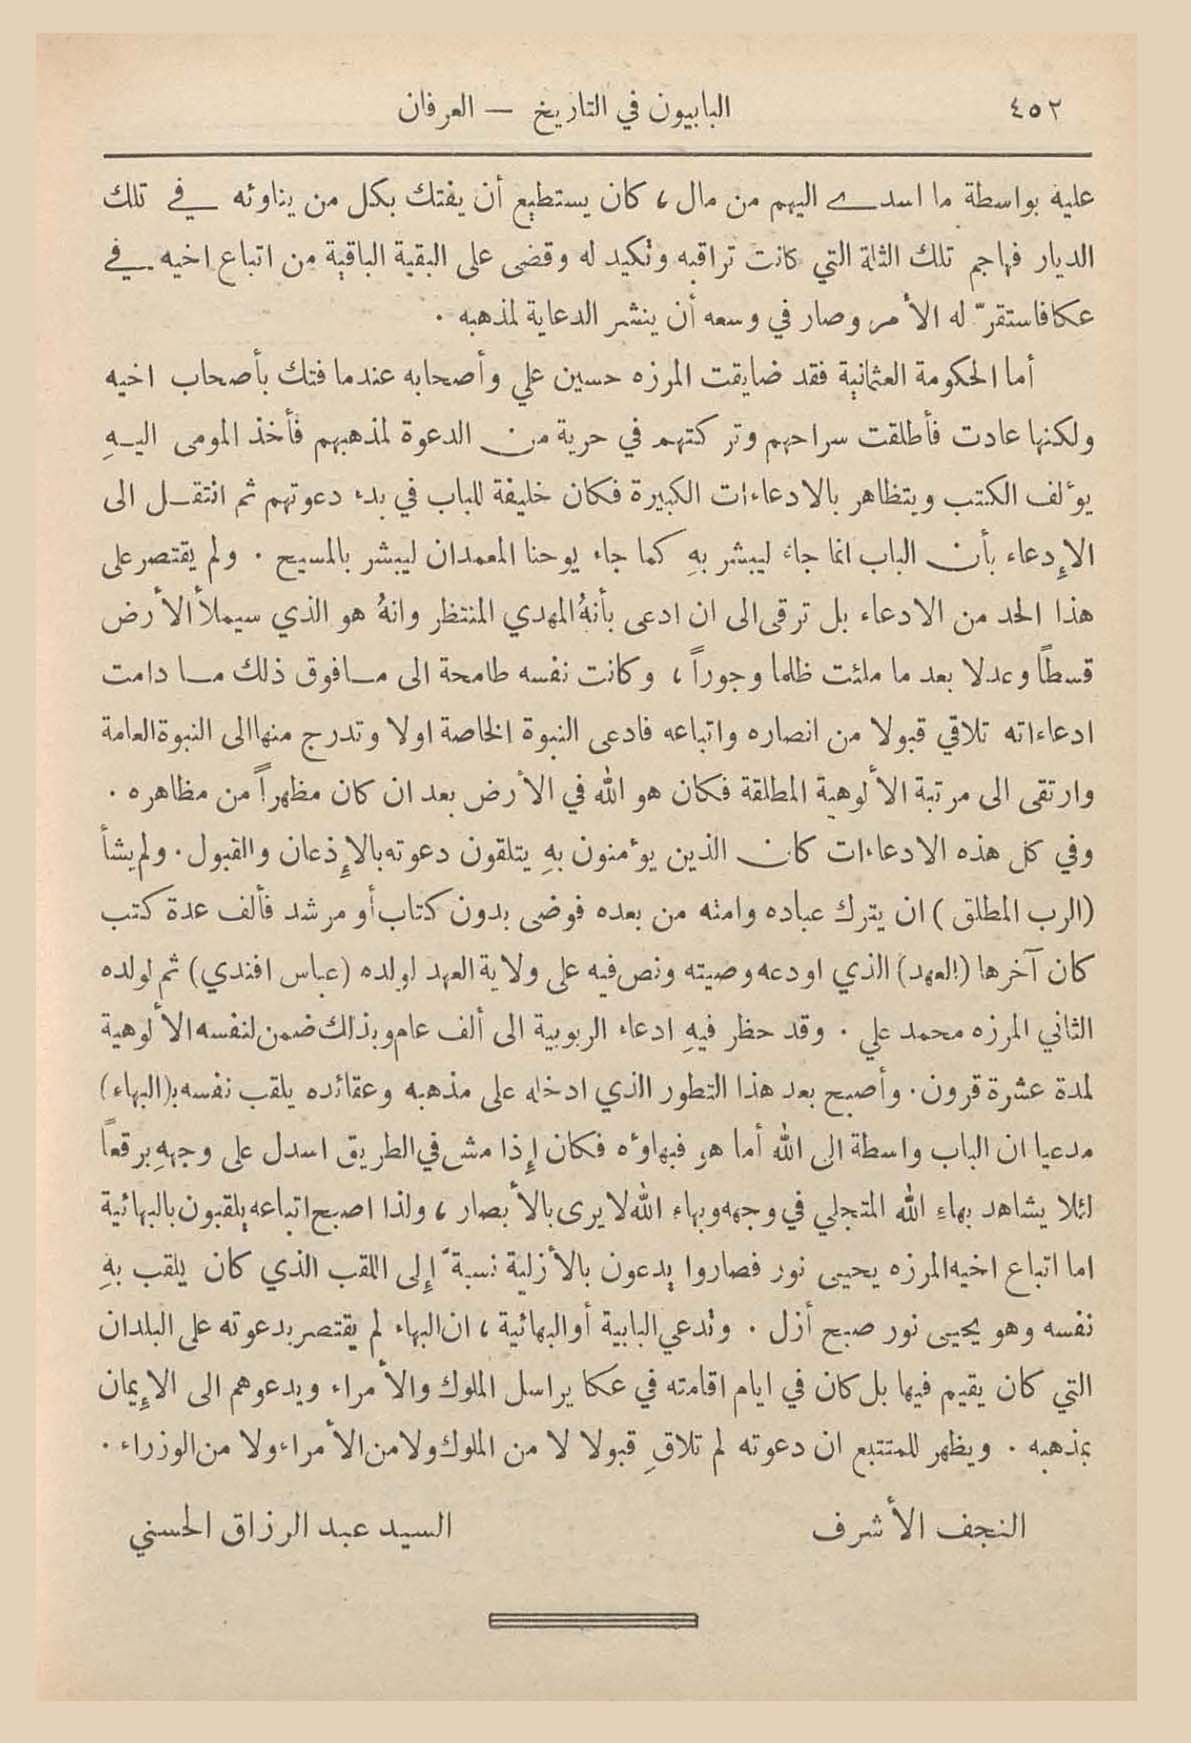 ٤٥٢
البابيون في التاريخ — العرفان
عليه بواسطة ما اسدے اليهم من مال ، كان يستطيع أن يفتك بكل من يناوئه في تلك
الديار فهاجم تلك الثلة التي كانت تراقبه وتكيد له وقضى على البقية الباقية من اتباع اخيه في
عكا فاستقرّ له الأمر وصار في وسعه أن ينشر الدعاية لمذهبه .
أما الحكومة العثمانية فقد ضايقت المرزه حسين علي وأصحابه عندما فتك بأصحاب اخيه
ولكنها عادت فأطلقت سراحهم وتركتهم في حرية من الدعوة لمذهبهم فأخذ المومى اليـهِ
يؤلف الكتب ويتظاهر بالادعاءات الكبيرة فكان خليفة للباب في بدء دعوتهم ثم انتقـل الى
الإدعاء بأن الباب انما جاء ليبشر بهِ كما جاء يوحنا المعمدان ليبشر بالمسيح . ولم يقتصر على
هذا الحد من الادعاء بل ترقى الى ان ادعى بأنهُ المهدي المنتظر وانهُ هو الذي سيملأ الأرض
قسطاً وعدلا بعد ما ملئت ظلما وجوراً ، وكانت نفسه طامحة الى مـا فوق ذلك مـا دامت
ادعاءاته تلاقي قبولا من انصاره واتباعه فادعى النبوة الخاصة اولا وتدرج منها الى النبوة العامة
وارتقى الى مرتبة الألوهية المطلقة فكان هو الله في الأرض بعد ان كان مظهراً من مظاهره .
وفي كل هذه الادعاءات كان الذين يؤمنون بهِ يتلقون دعوته بالإذعان والقبول . ولم يشأ
(الرب المطلق) ان يترك عباده وامته من بعده فوضى بدون كتاب أو مرشد فألف عدة كتب
كان آخرها (العهد) الذي اودعه وصيته ونص فيه على ولاية العهد لولده (عباس افندي) ثم لولده
الثاني المرزه محمد علي . وقد حظر فيهِ ادعاء الربوبية الى ألف عام وبذلك ضمن لنفسه الألوهية
لمدة عشرة قرون . وأصبح بعد هذا التطور الذي ادخله على مذهبه وعقائده يلقب نفسه بـ(البهاء)
مدعيا ان الباب واسطة الى الله أما هو فبهاؤه فكان إذا مشى في الطريق اسدل على وجههِ برقعاً
لئلا يشاهد بهاءِ الله المتجلي في وجهه وبهاء الله لا يرى بالأبصار ، ولذا اصبح اتباعه يلقبون بالبهائية
اما اتباع اخيه المرزه يحيى نور فصاروا يدعون بالأزلية نسبة إلى اللقب الذي كان يلقب بهِ
نفسه وهو يحيى نور صبح أزل . وتدعي البابية أو البهائية ، ان البهاء لم يقتصر بدعوته على البلدان
التي كان يقيم فيها بل كان في ايام اقامته في عكا يراسل الملوك والأمراء ويدعوهم الى الإيمان
بمذهبه . ويظهر للمتتبع ان دعوته لم تلاقِ قبولا لا من الملوك ولا من الأمراء ولا من الوزراء .
النجف الأشرف
السيد عبد الرزاق الحسني